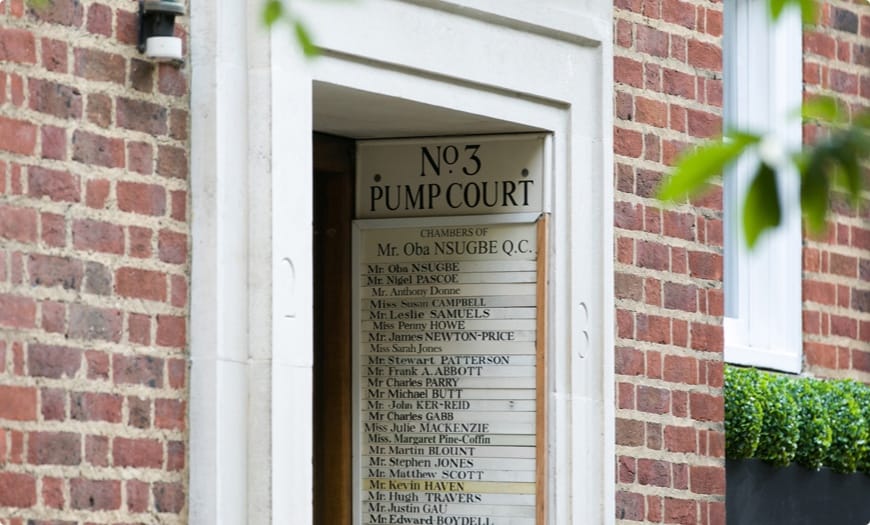 No. 3
PUMP COURT
CHAMBERS OF
Mr. Oba NSUGBE Q.C.
Mr. Oba NSUGBE
Mr. Nigel PASCOE
Mr. Anthony Donne
Miss Susan CAMPBELL
Mr. Leslie SAMUELS
Miss Penny HOWE
Mr. James NEWTON-PRICE
Miss Sarah Jones
Mr. Stewart PATTERSON
Mr. Frank A. ABBOTT
Mr Charles PARRY
Mr Michael BUTT
Mr. John KER-REID
Mr Charles GABB
Miss Julie MACKENZIE
Miss. Margaret Pine-Coffin
Mr. Martin BLOUNT
Mr. Stephen JONES
Mr. Matthew SCOTT
Mr. Kevin HAVEN
Mr. Hugh TRAVERS
Mr. Justin GAU
Mr. Edward BOYDELL
3